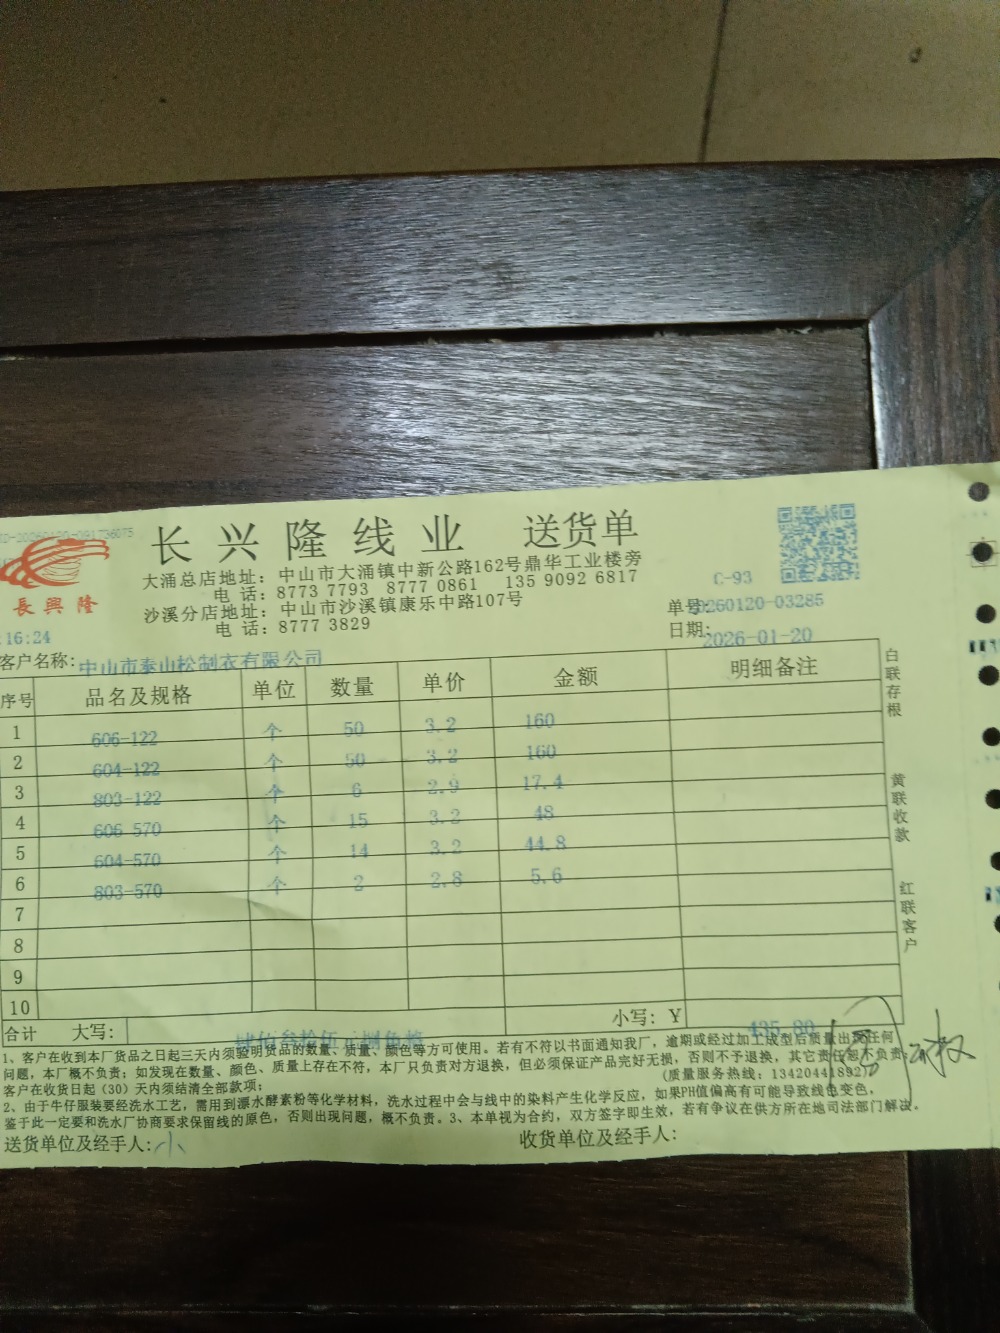 长兴隆线业 送货单
長興隆
大涌总店地址：中山市大涌镇中新公路162号鼎华工业楼旁
电 话：8773 7793 8777 0861 135 9092 6817
沙溪分店地址：中山市沙溪镇康乐中路107号
电 话：8777 3829
C-93
单号：20260120-03285
日期：2026-01-20
:16:24
客户名称：中山市泰山松制衣有限公司
序号 品名及规格 单位 数量 单价 金额 明细备注
1 606-122 个 50 3.2 160
2 604-122 个 50 3.2 160
3 803-122 个 6 2.9 17.4
4 606-570 个 15 3.2 48
5 604-570 个 14 3.2 44.8
6 803-570 个 2 2.8 5.6
7
8
9
10
合计 大写： 肆佰叁拾伍元捌角整 小写：￥ 435.80
白联存根
黄联收款
红联客户
1、客户在收到本厂货品之日起三天内须验明货品的数量、质量、颜色等方可使用。若有不符以书面通知我厂，逾期或经过加工成型后质量出现任何
问题，本厂概不负责；如发现在数量、颜色、质量上存在不符，本厂只负责对方退换，但必须保证产品完好无损，否则不予退换，其它责任恕不负责；
(质量服务热线：13420441892)
客户在收货日起（30）天内须结清全部款项；
2、由于牛仔服装要经洗水工艺，需用到漂水酵素粉等化学材料，洗水过程中会与线中的染料产生化学反应，如果PH值偏高有可能导致线色变色，
鉴于此一定要和洗水厂协商要求保留线的原色，否则出现问题，概不负责。3、本单视为合约，双方签字即生效，若有争议在供方所在地司法部门解决。
送货单位及经手人：小
收货单位及经手人：